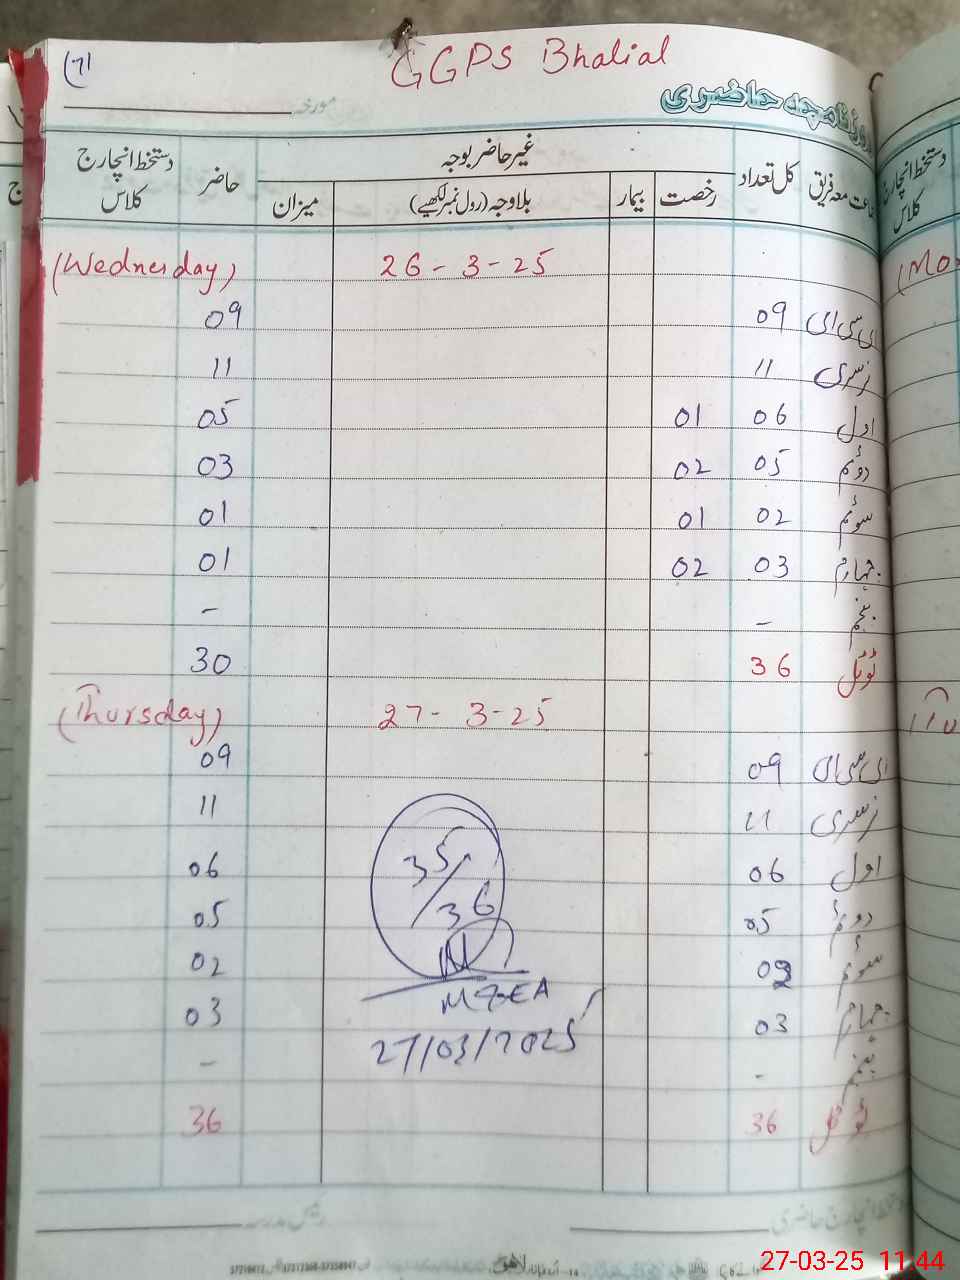 (71
GGPS Bhalial
روزنامچہ حاضری
مورخہ
جماعت معہ فریق کل تعداد غیر حاضر بوجہ حاضر دستخط انچارج کلاس
رخصت بیمار بلاوجہ (رول نمبر لکھیے) میزان
(Wednesday) 26-3-25
ای سی ای 09 09
نرسری 11 11
اول 06 01 05
دوئم 05 02 03
سوئم 02 01 01
چہارم 03 02 01
پنجم - -
ٹوٹل 36 30
(Thursday) 27-3-25
ای سی ای 09 09
نرسری 11 11
اول 06 06
دوئم 05 05
سوئم 02 02
چہارم 03 03
پنجم - -
ٹوٹل 36 36
35/36
M&EA
27/03/2025
دستخط انچارج حاضری رئیس مدرسہ
دستخط انچارج
کلاس
(Mo
27-03-25 11:44